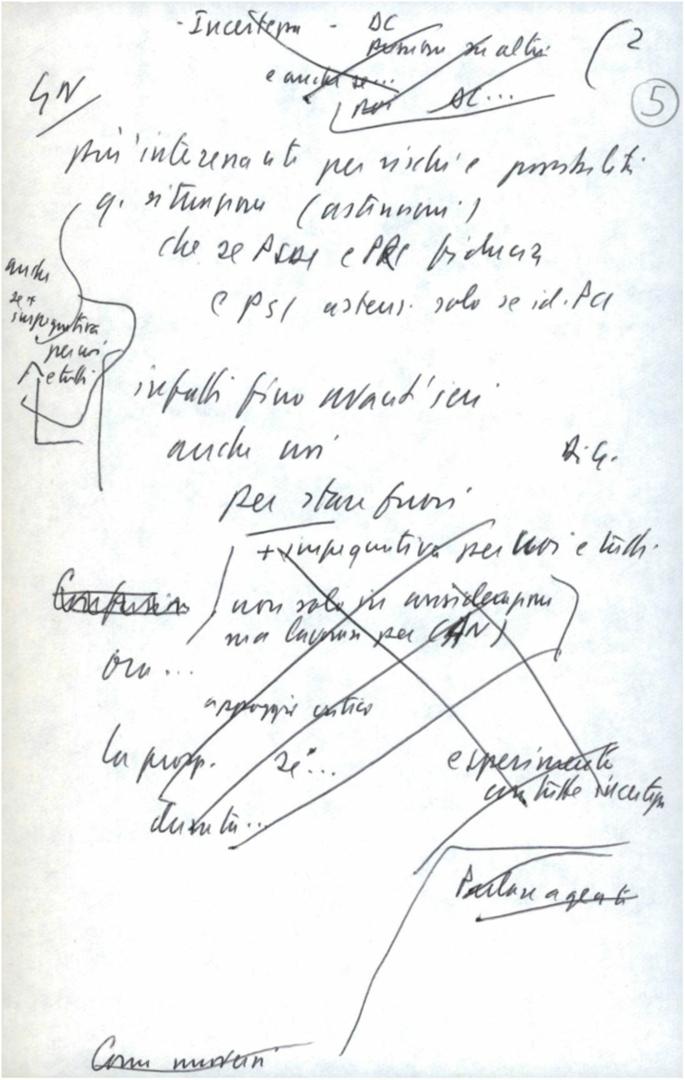 - Incertezza - DC
su altri
e anche se...
noi DC...
2
5
GN
più interessanti per rischi e possibilità
situazione (astensioni)
che se PSDI e PRI fiducia
e PSI astens. solo se id. PCI
anche
se +
impegnativa
per noi
e tutti
infatti fino avanti ieri
anche noi
per stare fuori
+ impegnativa per noi e tutti.
non solo in considerazione
ma lavorare per (GN)
ora...
appoggio critico
la prop. se...
esperimento
con tutte incertezze
durata...
Parlare a gente
Come muoversi